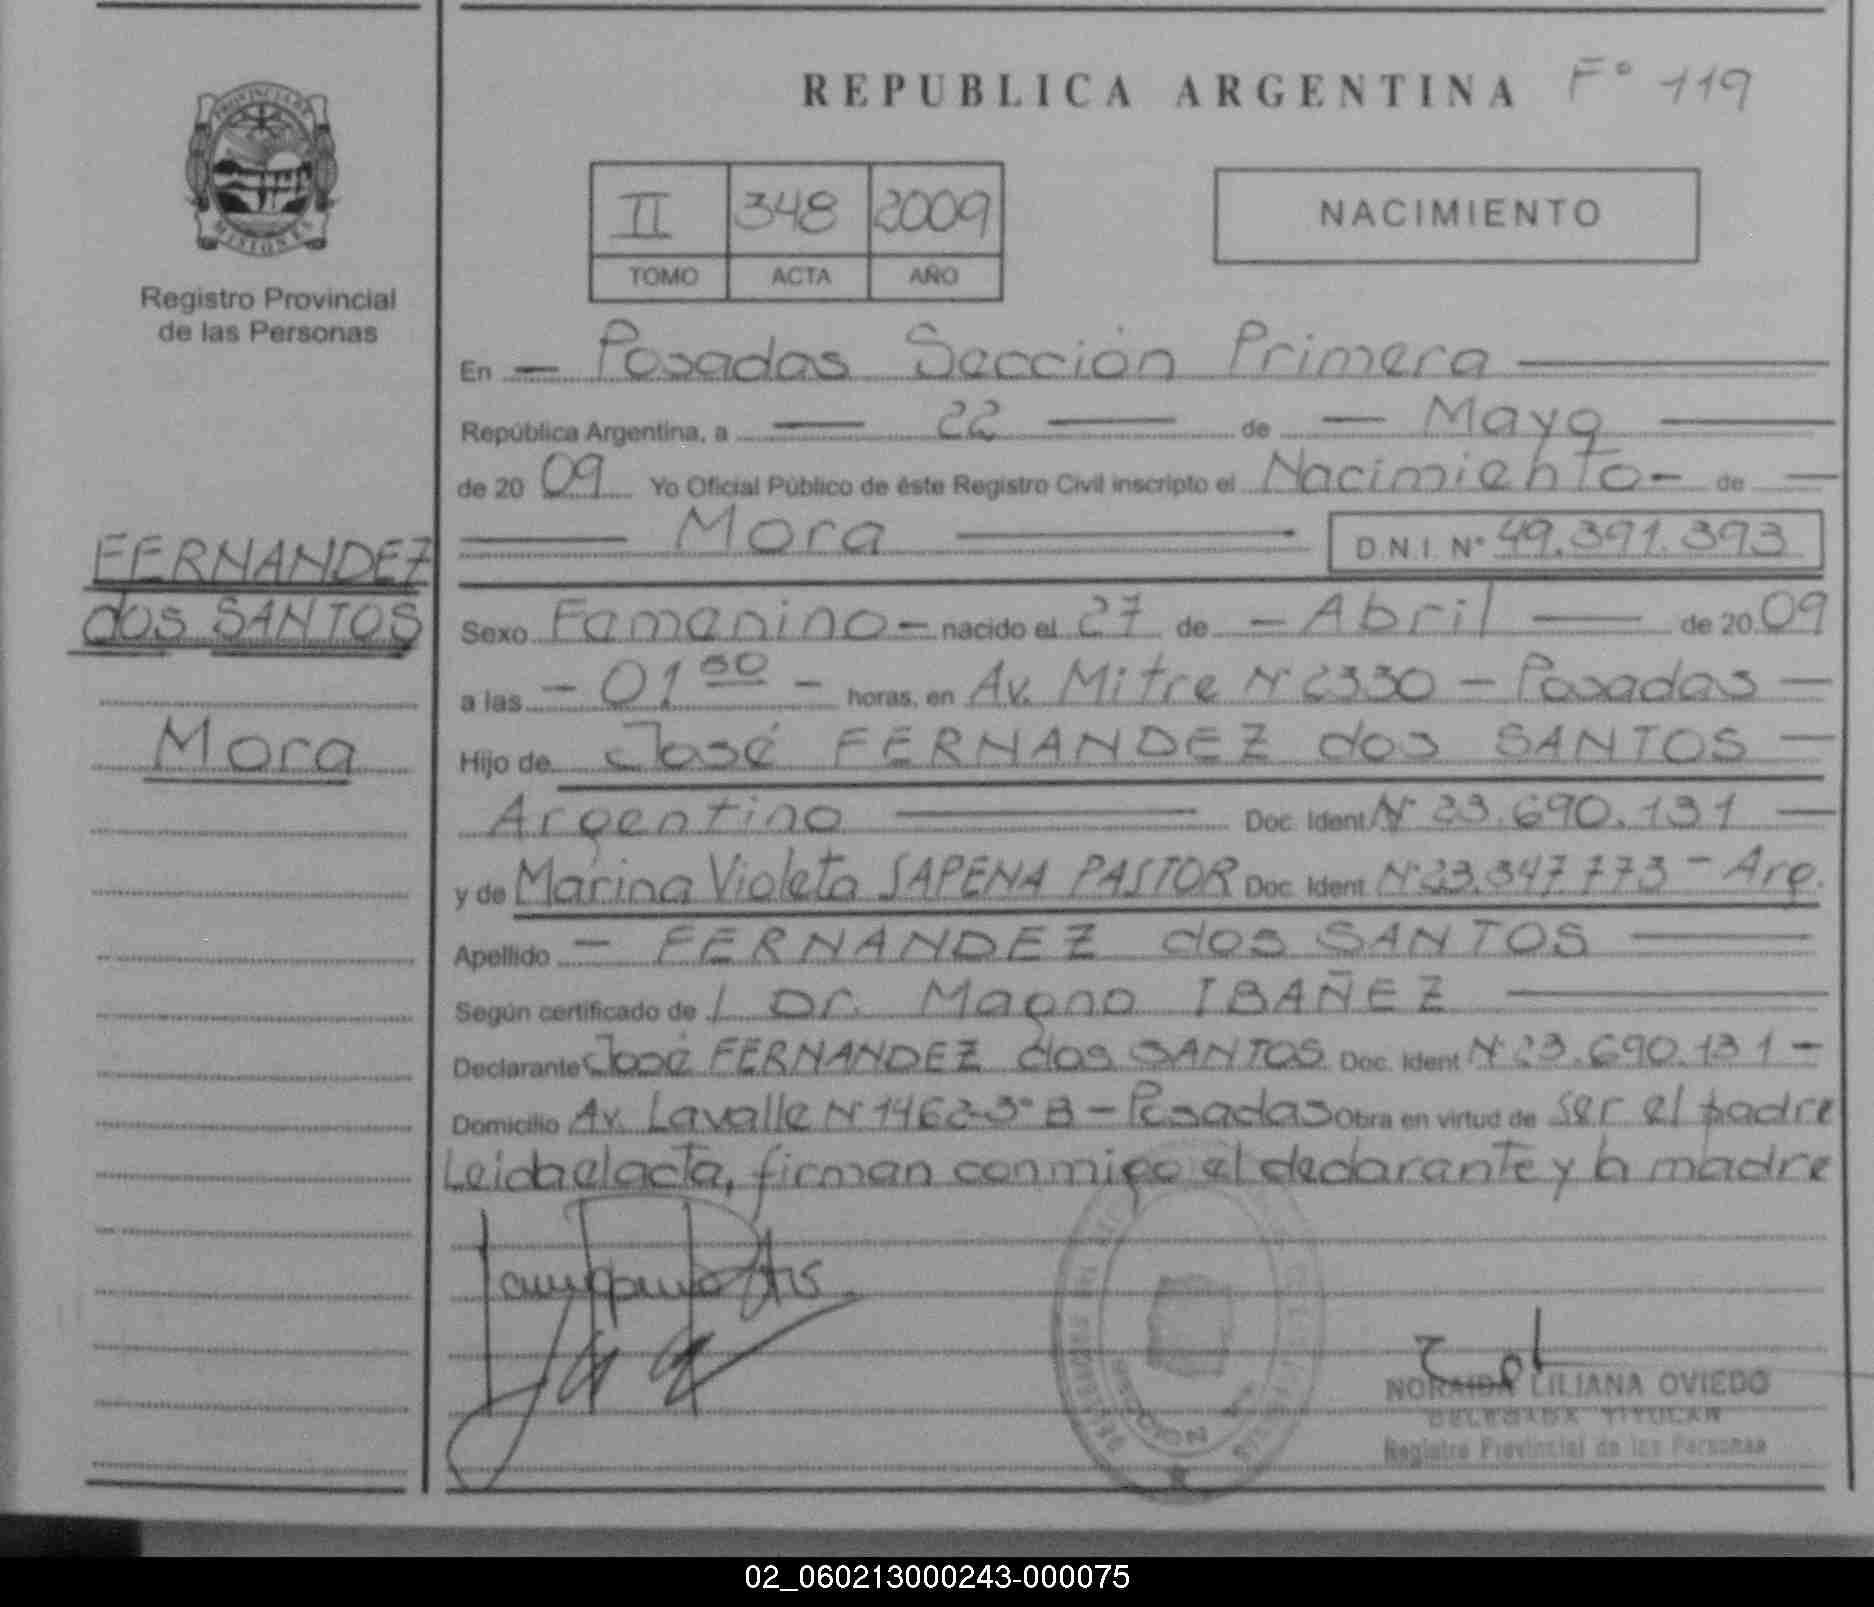 REPUBLICA ARGENTINA F° 119
PROVINCIA DE
MISIONES
Registro Provincial
de las Personas
II 348 2009
TOMO ACTA AÑO
NACIMIENTO
En — Posadas Sección Primera —
República Argentina, a — 22 — de — Mayo —
de 20 09 Yo Oficial Público de éste Registro Civil inscripto el Nacimiento - de —
— Mora — D.N.I. N° 49.391.393
FERNANDEZ
dos SANTOS
Mora
Sexo Femenino - nacido el 27 de - Abril — de 20 09
a las - 01 50 - horas, en Av. Mitre N° 2330 - Posadas —
Hijo de José FERNANDEZ dos SANTOS —
Argentino — Doc. Ident. N° 23.690.131 —
y de Marina Violeta SAPENA PASTOR Doc. Ident. N° 23.347.773 - Arg.
Apellido - FERNANDEZ dos SANTOS —
Según certificado de / Dr. Magno IBAÑEZ —
Declarante José FERNANDEZ dos SANTOS Doc. Ident N° 23.690.131 -
Domicilio Av. Lavalle N° 1462-3° B - Posadas Obra en virtud de ser el padre
Leida el acta, firman conmigo el declarante y la madre
NORAIDA LILIANA OVIEDO
DELEGADA TITULAR
Registro Provincial de las Personas
02_060213000243-000075